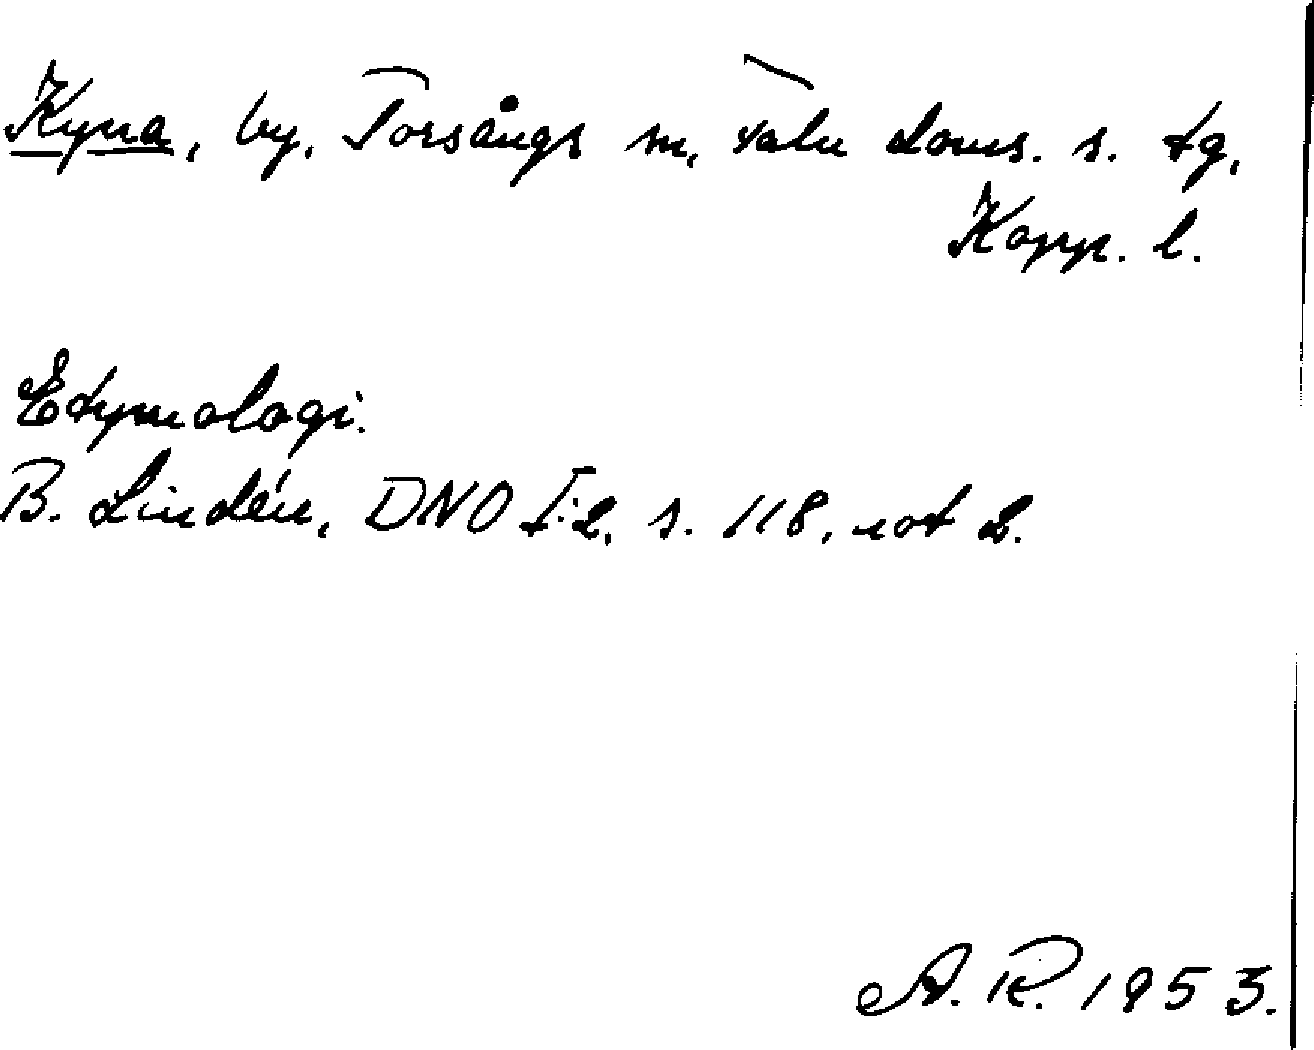 Kyna, by, Torsångs sn, Falu doms. s. tg,
Kopp. l.
Etymologi.
B. Lindén, DNO I:2, s. 118, not 2.
A. R. 1953.